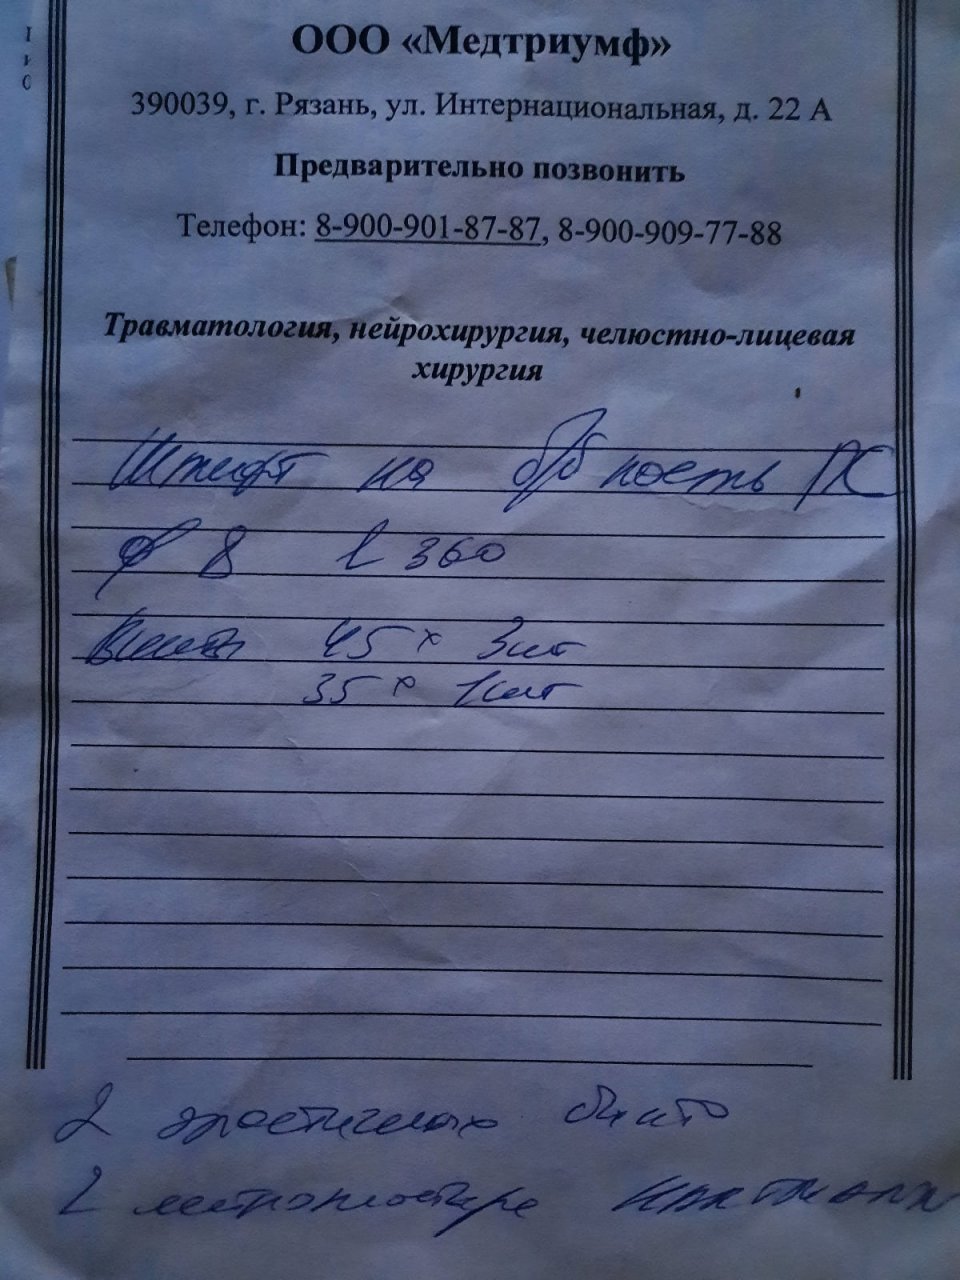 ООО «Медтриумф»
390039, г. Рязань, ул. Интернациональная, д. 22 А
Предварительно позвонить
Телефон: 8-900-901-87-87, 8-900-909-77-88
Травматология, нейрохирургия, челюстно-лицевая
хирургия
Штифт на б/б кость
ф 8 l 360
Винты 45 x 3 шт
35 x 1 шт
2 эластичных бинта
2 лейкопластыря